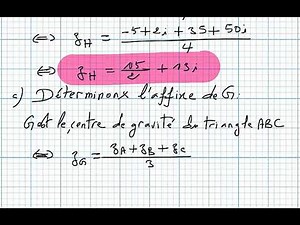 ⇔ z_H = (-5+2i+35+50i)/4
⇔ z_H = 15/2 + 13i
c) Déterminons l'affixe de G:
G est le centre de gravité du triangle ABC
⇔ z_G = (z_A+z_B+z_C)/3